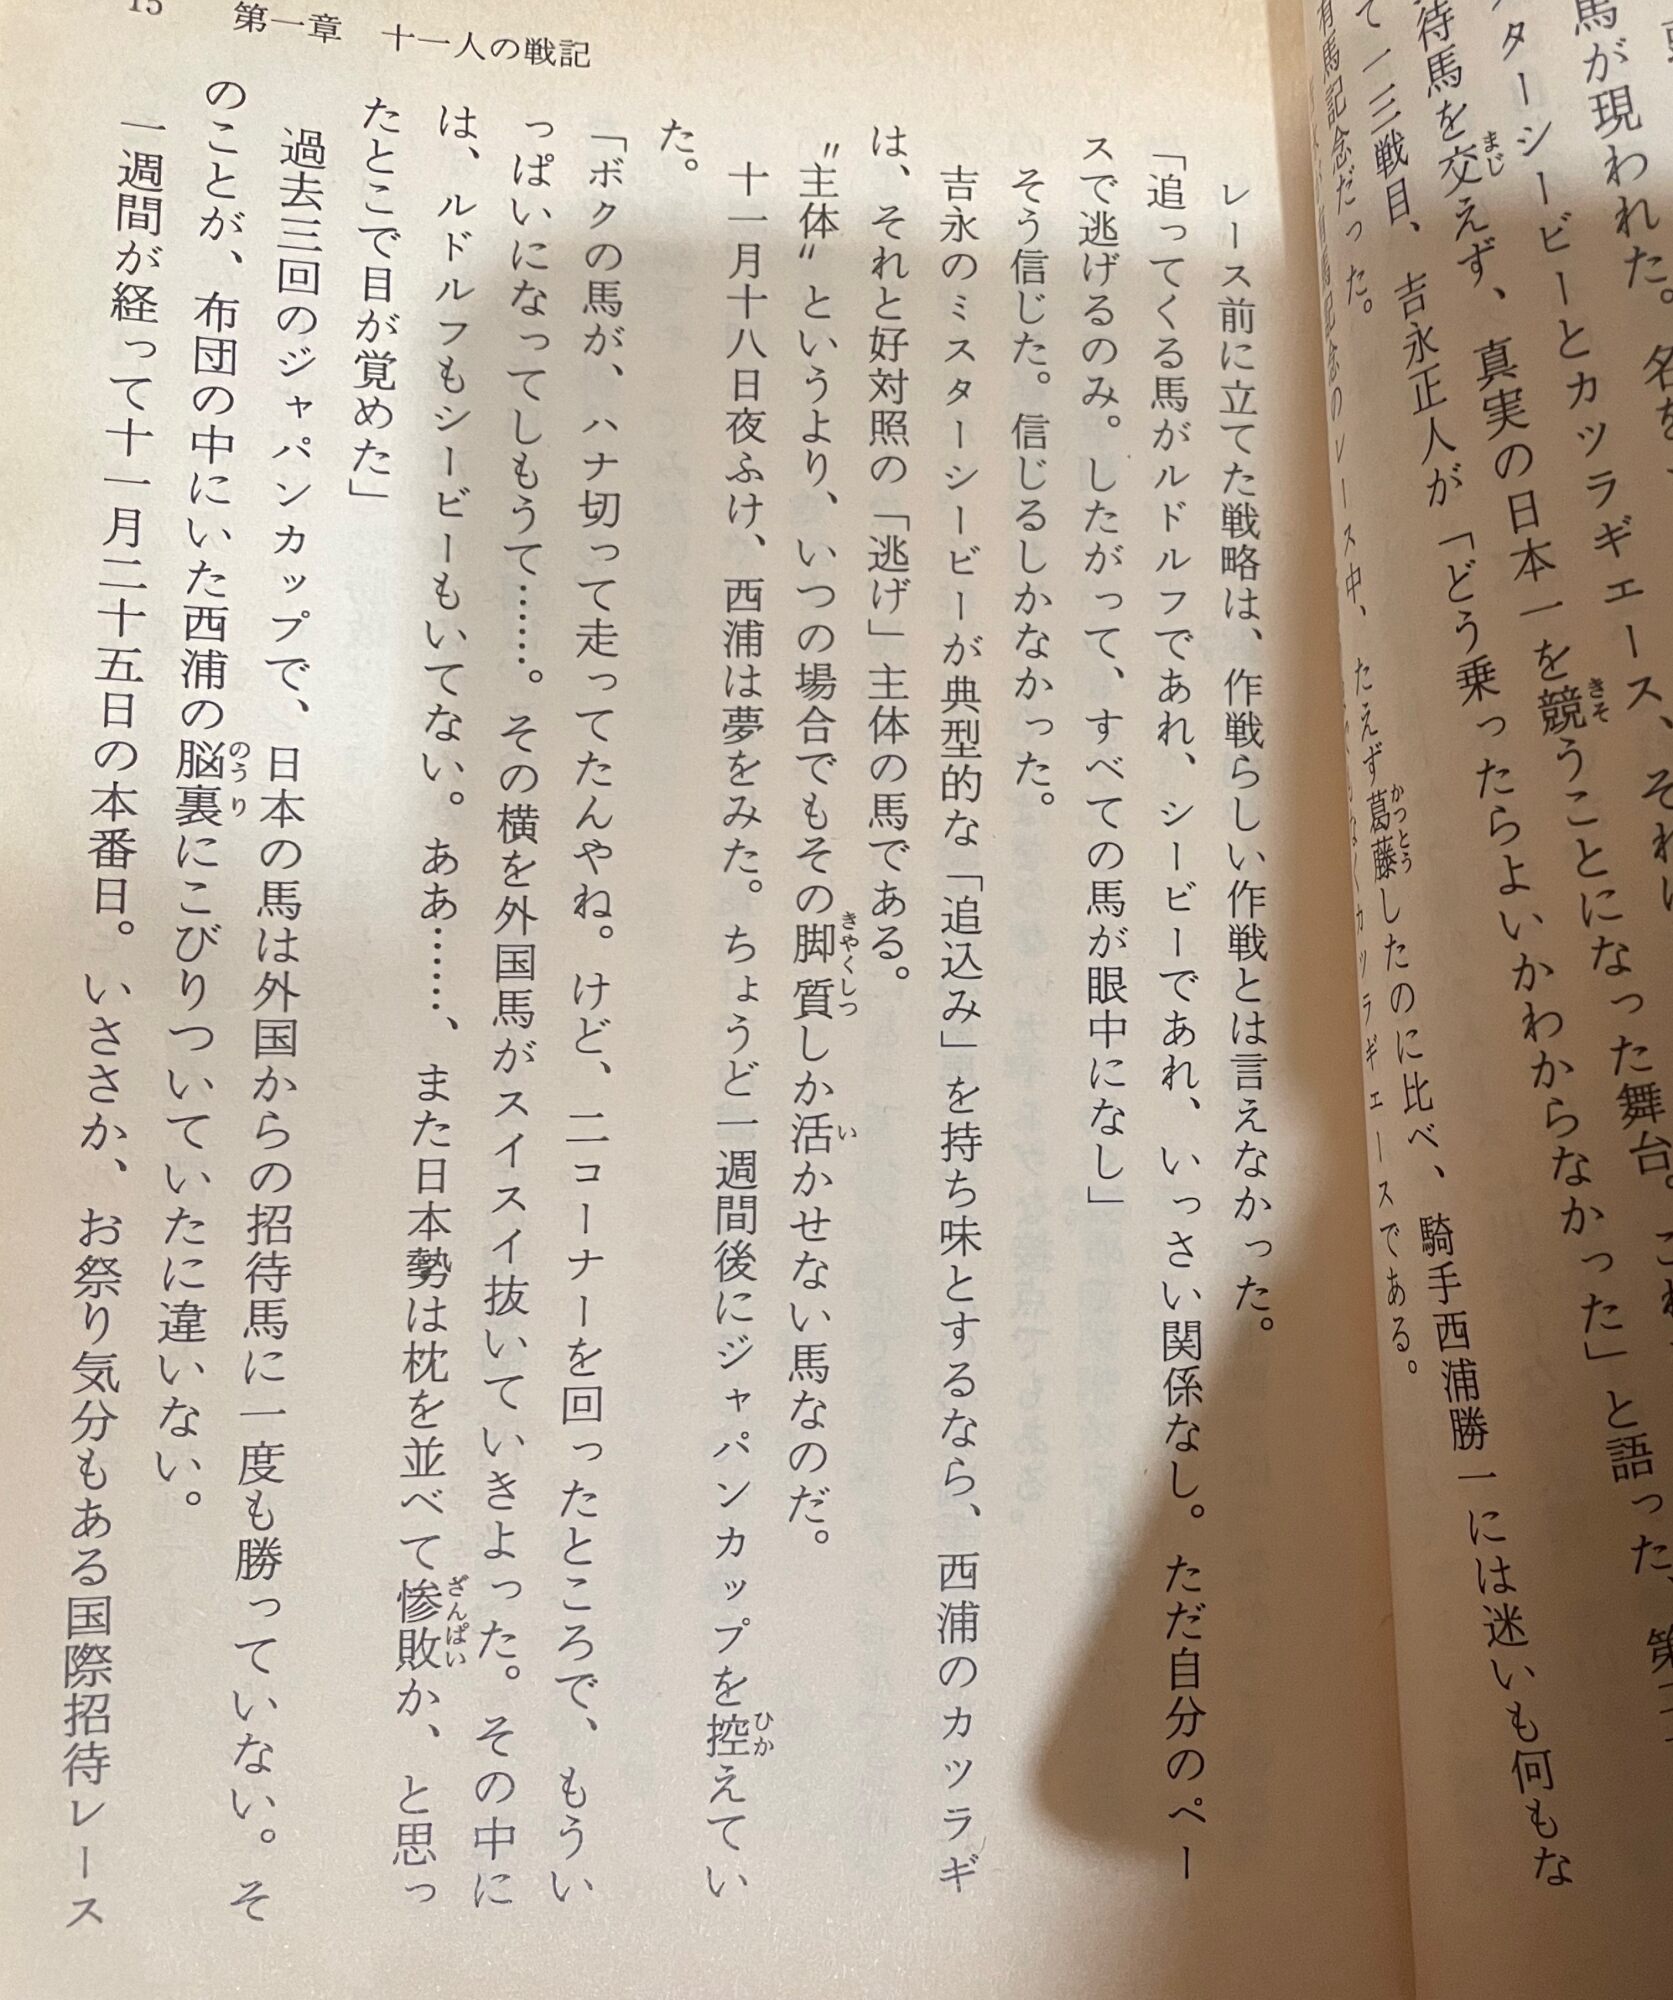 馬が現われた。名を
ターシービーとカツラギエース、それに
待馬を交えず、真実の日本一を競うことになった舞台。これ
て一三戦目、吉永正人が「どう乗ったらよいかわからなかった」と語った、第
有馬記念だった。
有馬記念のレース中、たえず葛藤したのに比べ、騎手西浦勝一には迷いも何もな
なくカツラギエースである。
15 第一章 十一人の戦記
レース前に立てた戦略は、作戦らしい作戦とは言えなかった。
「追ってくる馬がルドルフであれ、シービーであれ、いっさい関係なし。ただ自分のペー
スで逃げるのみ。したがって、すべての馬が眼中になし」
そう信じた。信じるしかなかった。
吉永のミスターシービーが典型的な「追込み」を持ち味とするなら、西浦のカツラギ
は、それと好対照の「逃げ」主体の馬である。
〝主体〟というより、いつの場合でもその脚質しか活かせない馬なのだ。
十一月十八日夜ふけ、西浦は夢をみた。ちょうど一週間後にジャパンカップを控えてい
た。
「ボクの馬が、ハナ切って走ってたんやね。けど、二コーナーを回ったところで、もうい
っぱいになってしもうて……。その横を外国馬がスイスイ抜いていきよった。その中に
は、ルドルフもシービーもいてない。ああ……、また日本勢は枕を並べて惨敗か、と思っ
たとこで目が覚めた」
過去三回のジャパンカップで、日本の馬は外国からの招待馬に一度も勝っていない。そ
のことが、布団の中にいた西浦の脳裏にこびりついていたに違いない。
一週間が経って十一月二十五日の本番日。いささか、お祭り気分もある国際招待レース